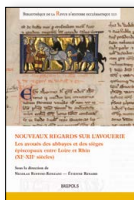 BIBLIOTHÈQUE DE LA REVUE D'HISTOIRE ECCLÉSIASTIQUE
NOUVEAUX REGARDS SUR L'AVOUERIE
Les avoués des abbayes et des sièges
épiscopaux entre Loire et Rhin
(XIᵉ-XIIᵉ siècles)
Sous la direction de
BREPOLS